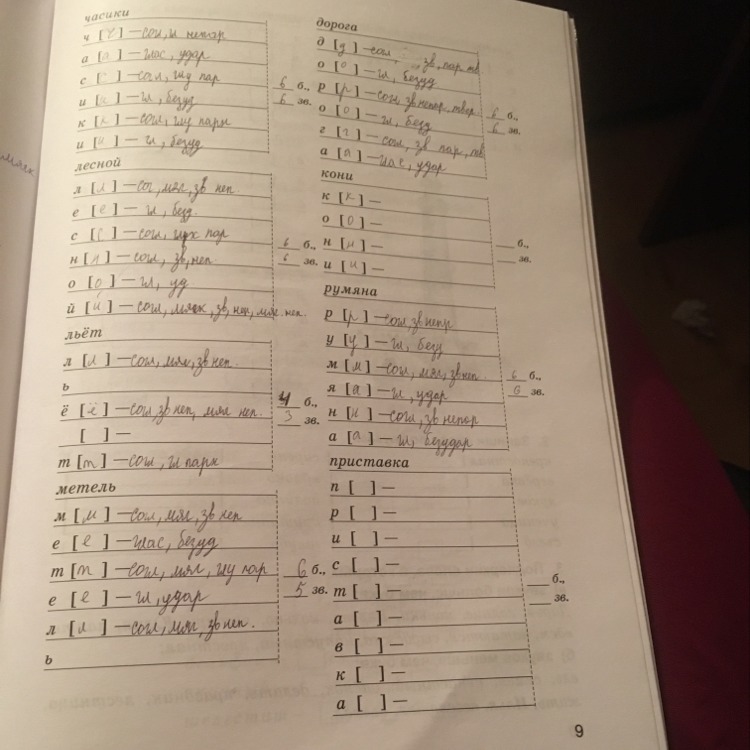 часики
ч [ч] — сог, гл непар
а [а] — глас, удар
с [с] — согл, глу пар
и [и] — гл, безуд
к [к] — согл, глу парн
и [и] — гл, безуд
6 б.,
6 зв.
лесной
л [л] — сог, мяг, зв неп
е [е] — гл, безд.
с [с] — согл, пар
н [н] — согл, зв, неп.
о [о] — гл, уд
й [й] — согл, мягк, зв, неп, мяг. неп.
6 б.,
6 зв.
льёт
л [л] — согл, мяг, зв неп.
ь
ё [ё] — согл, зв неп, мяг неп.
[ ] —
т [т] — согл, гл парн
4 б.,
3 зв.
метель
м [м] — согл, мяг, зв неп
е [е] — глас, безуд
т [т] — согл, мяг, глу пар
е [е] — гл, удар
л [л] — согл, мяг, зв неп.
ь
6 б.,
5 зв.
дорога
д [д] — согл, зв, пар, тв
о [о] — гл, безуд
р [р] — согл, зв непар, твер.
о [о] — гл, безд
г [г] — согл, зв пар, тв
а [а] — глас, удар
6 б.,
6 зв.
кони
к [к] —
о [о] —
н [н] —
и [и] —
б.,
зв.
румяна
р [р] — согл, зв непр
у [у] — гл, безд
м [м] — согл, мяг, зв неп.
я [а] — гл, удар
н [н] — согл, зв непар
а [а] — гл, безудар
6 б.,
6 зв.
приставка
п [ ] —
р [ ] —
и [ ] —
с [ ] —
т [ ] —
а [ ] —
в [ ] —
к [ ] —
а [ ] —
б.,
зв.
9